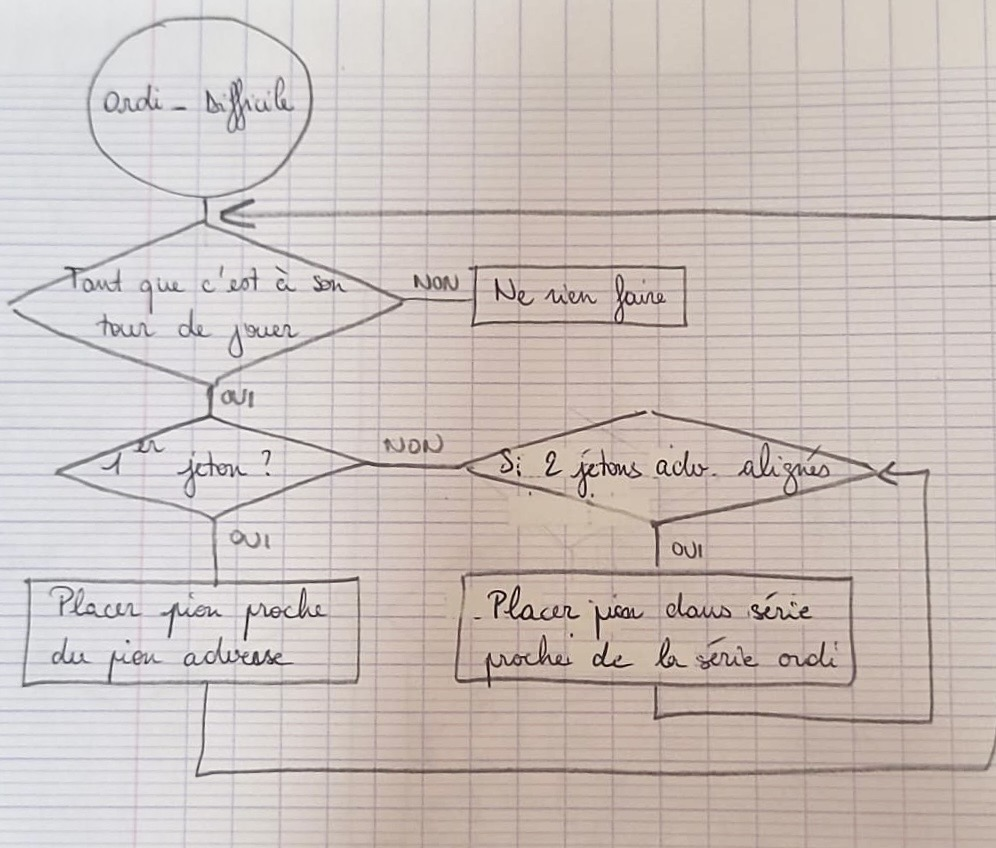 Ordi - Difficile
Tant que c'est à son
tour de jouer
NON
Ne rien faire
OUI
1er jeton ?
NON
Si 2 jetons adv. alignés
OUI
OUI
Placer pion proche
du pion adverse
- Placer pion dans série
proche de la série ordi